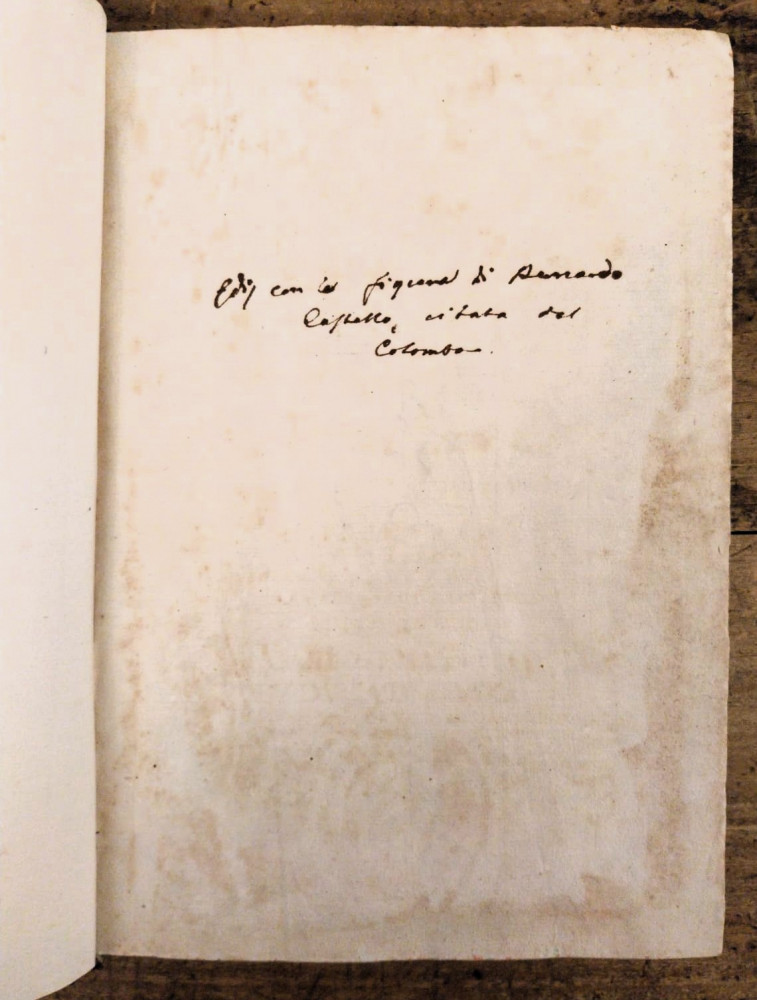 Ediz con le figure di Bernardo
Castello, citata dal
Colombo.